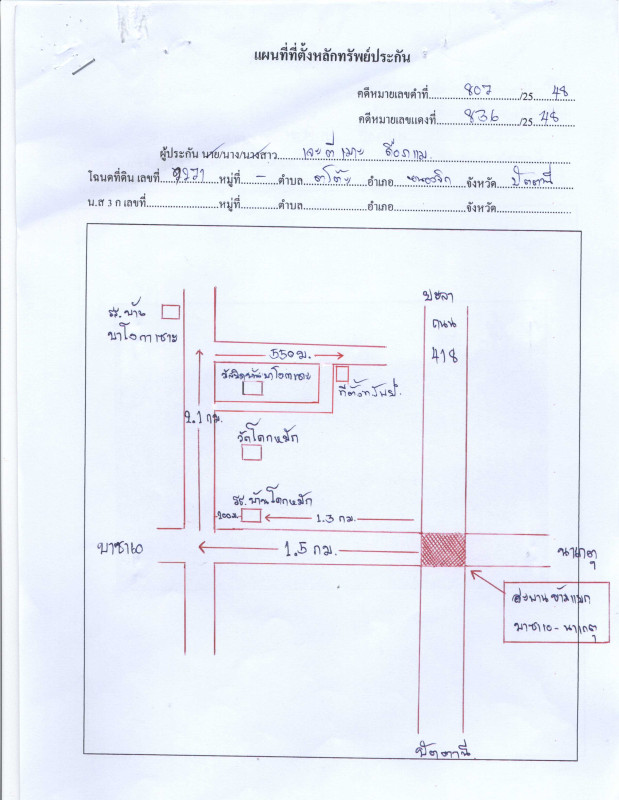 แผนที่ที่ตั้งหลักทรัพย์ประกัน
คดีหมายเลขดำที่ 807 /25 48
คดีหมายเลขแดงที่ 836 /25 48
ผู้ประกัน นาย/นาง/นางสาว เจะตีเมาะ
โฉนดที่ดิน เลขที่ 9271 หมู่ที่ - ตำบล อำเภอ หนองจิก จังหวัด ปัตตานี
น.ส 3 ก เลขที่ หมู่ที่ ตำบล อำเภอ จังหวัด
ยะลา
รร.บ้าน
ถนน
418
550 ม.
ที่ตั้งทรัพย์
2.1 กม.
วัดโคกหมัก
รร.บ้านโคกหมัก
200ม.
1.3 กม.
บาซาเอ
1.5 กม.
นาเกตุ
สะพานข้ามแยก
บาซาเอ - นาเกตุ
ปัตตานี